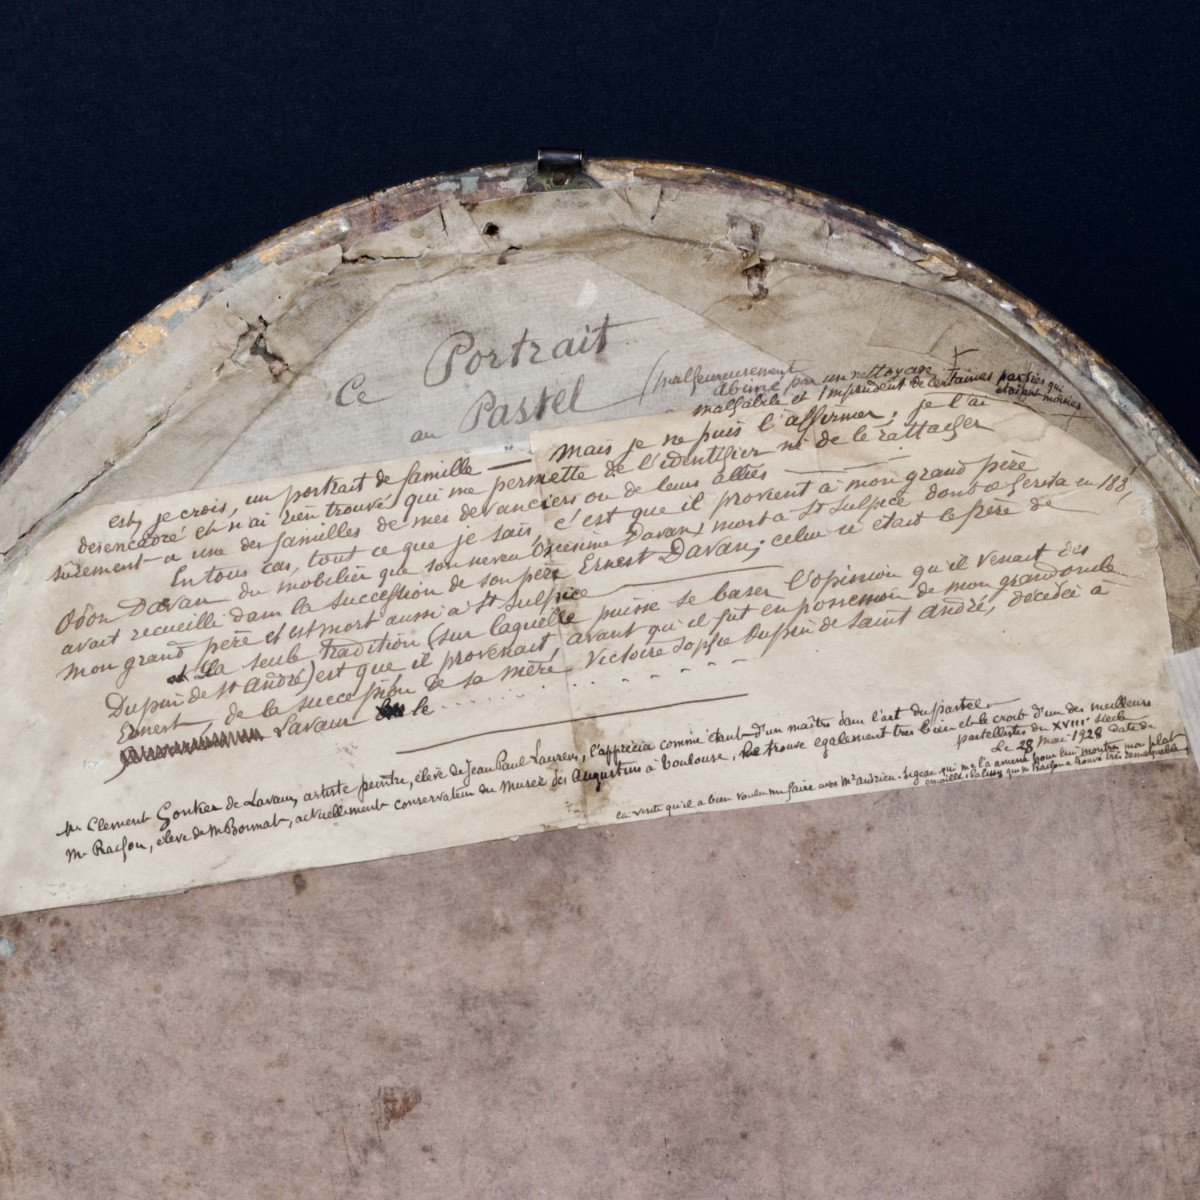 Ce Portrait
au Pastel
(malheureusement
abimé par un nettoyage
malhabile et imprudent de certaines parties qui
étaient moisies
est, je crois, un portrait de famille — mais je ne puis l'affirmer; je l'ai
désencadré et n'ai rien trouvé qui me permette de l'identifier ni de le rattacher
sûrement à une des familles de mes devanciers ou de leurs alliés
En tous cas, tout ce que je sais, c'est que il provient à mon grand père
Odon Davan du mobilier que son neveu Onésime Davan, mort à St Sulpice dont il hérita en 188,
avait recueilli dans la succession de son père Ernest Davan; celui ci était le frère de
mon grand père et est mort aussi à St Sulpice
La seule tradition (sur laquelle puisse se baser l'opinion qu'il venait des
Dupin de St André) est que il provenait, avant qu'il fut en possession de mon grand oncle
Ernest, de la succession de sa mère Victoire Sophie Dupin de Saint André, décédée à
Lavaur le . . . . . . . .
Mr Clément Gontier de Lavaur, artiste peintre, élève de Jean Paul Laurens, l'apprécia comme étant d'un maître dans l'art du pastel
Mr Rachou, élève de Mr Bonnat, actuellement conservateur du Musée des Augustins à Toulouse, le trouve également très bien et le croit d'un des meilleurs
pastellistes du XVIIIe siècle
Le 28 mai 1928 date de
la visite qu'il a bien voulu me faire avec Mr Andrieu qui me l'a amené pour lui montrer ma plat
que Mr Rachou a trouvé très remarquable